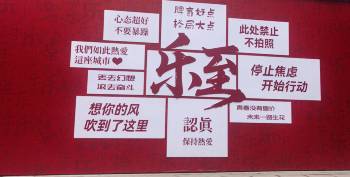 心态超好
不要暴躁
脾气好点
格局大点
此处禁止
不拍照
我們如此熱愛
這座城市❤
乐至
丢丢幻想
滚去奋斗
停止焦虑
开始行动
想你的风
吹到了这里
認真
保持熱愛
青春没有售价
未来一路生花